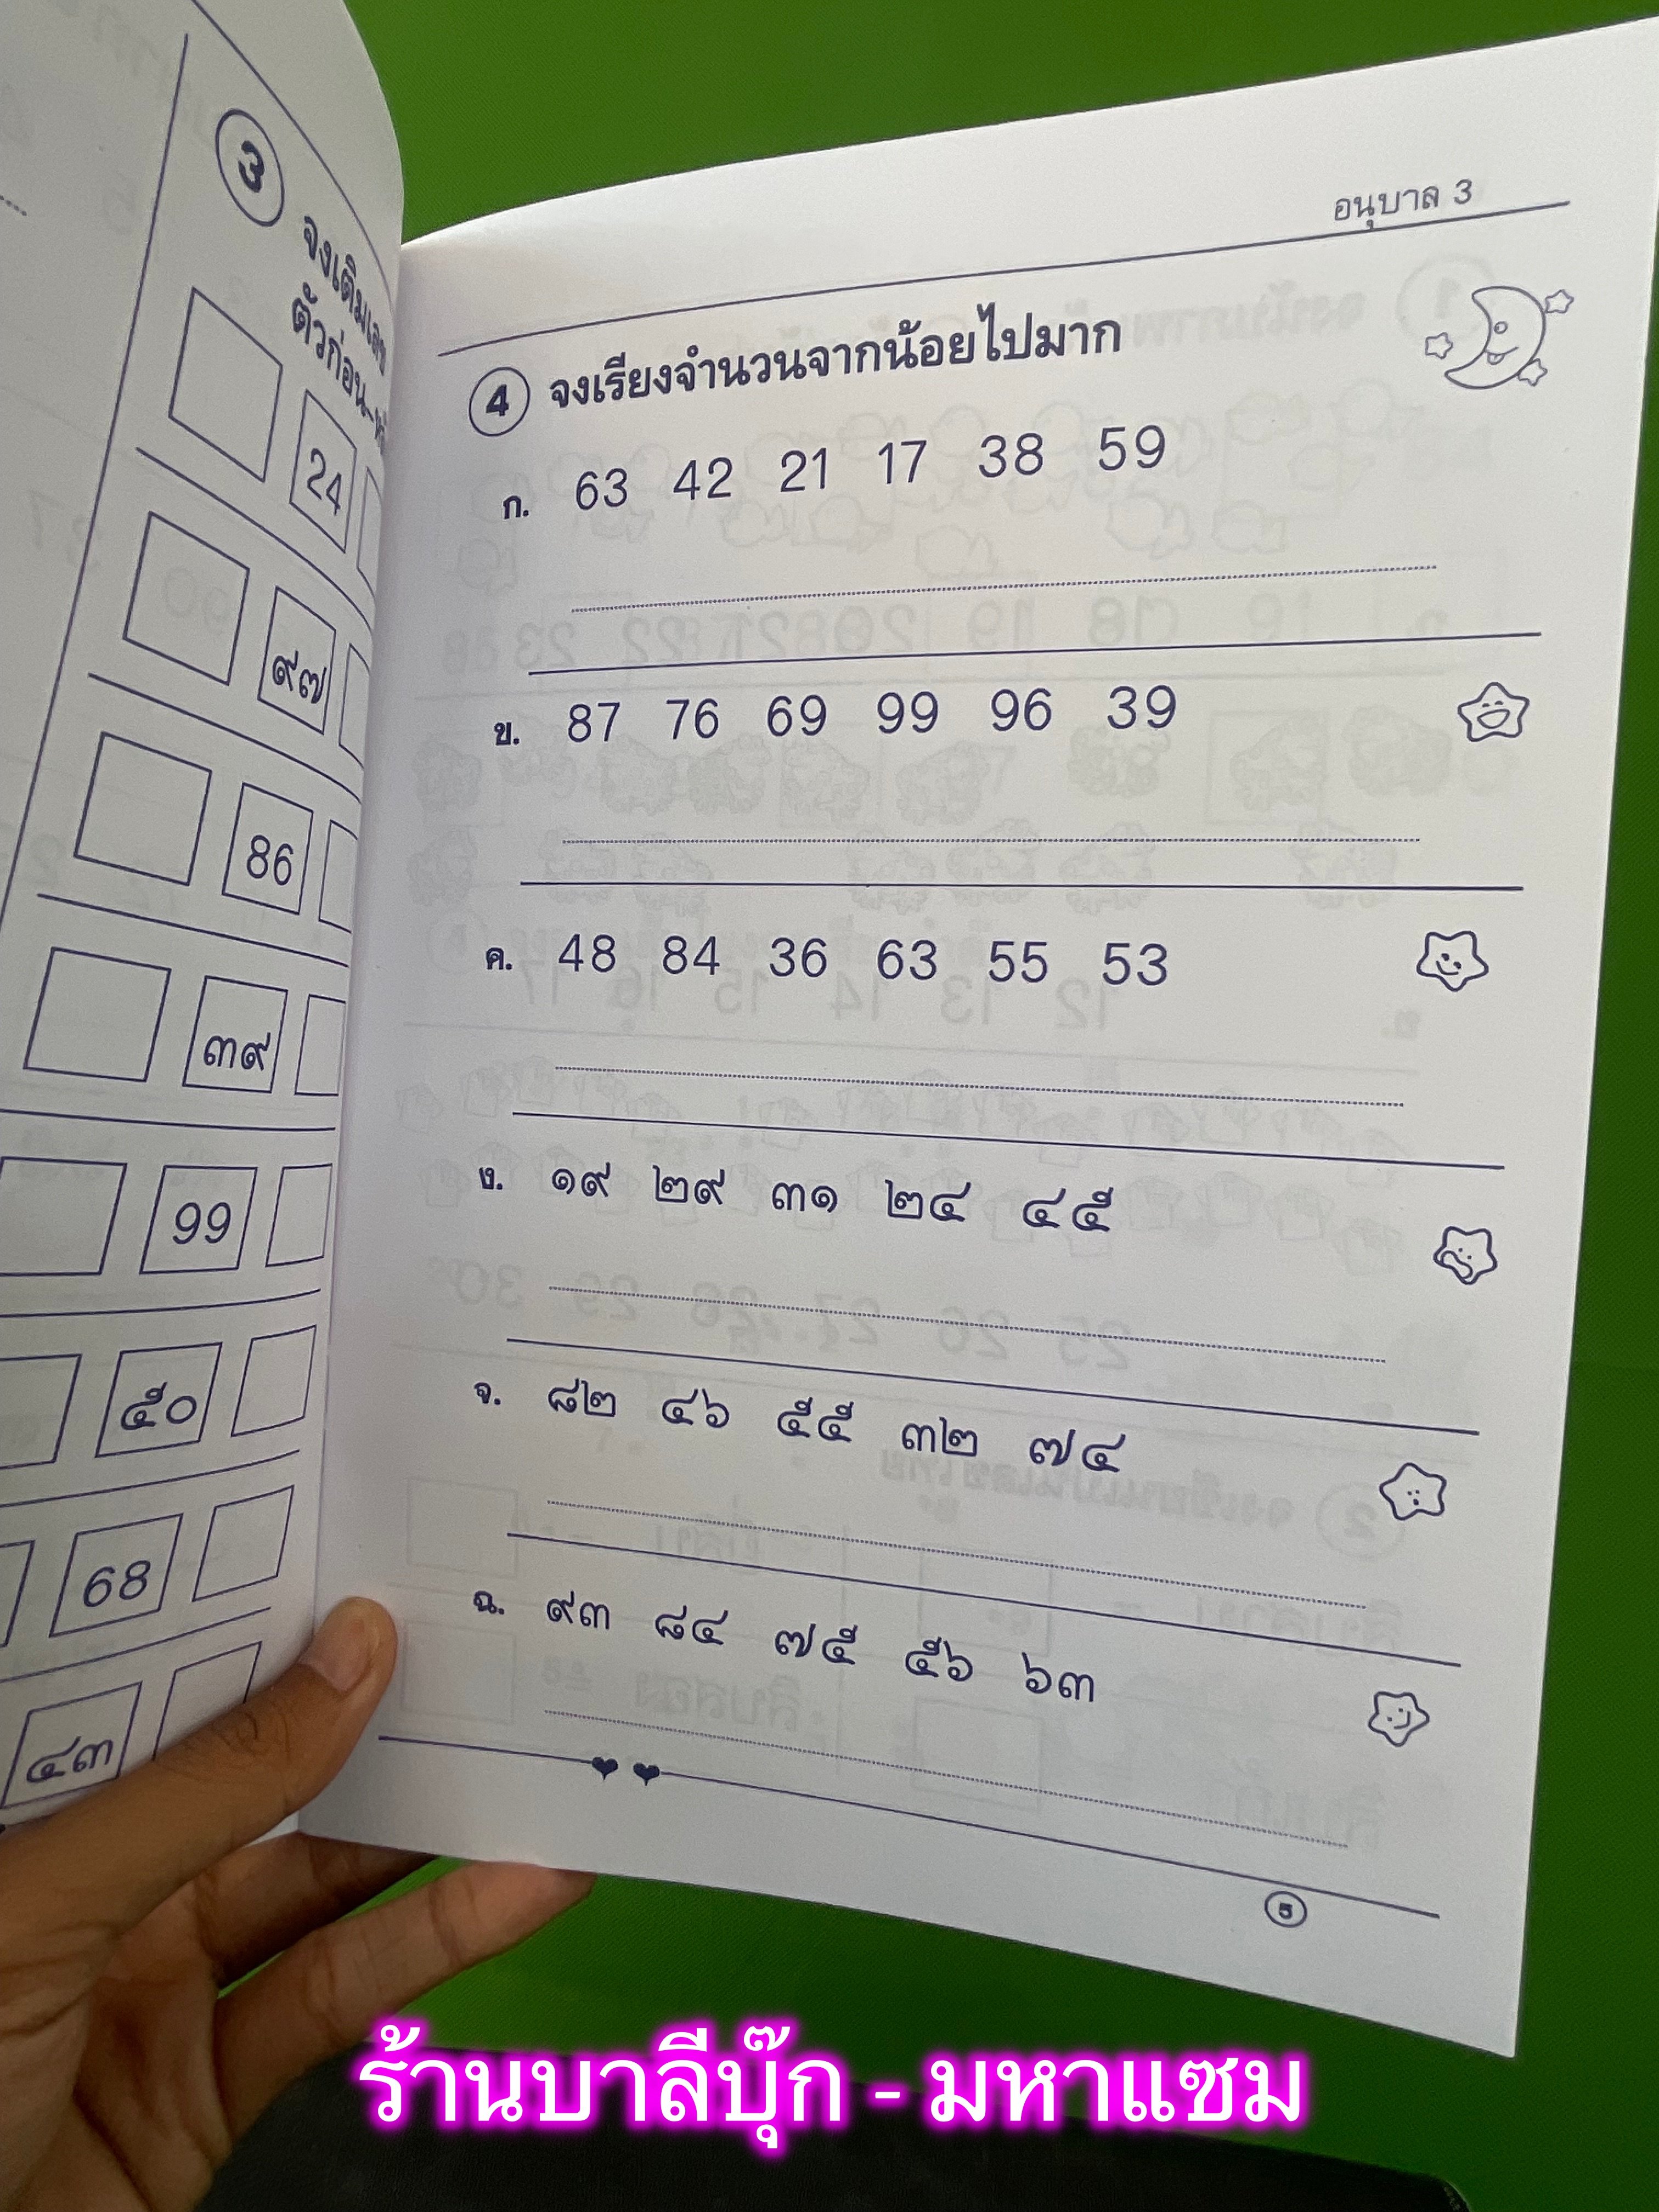 3 จงเติมเลข
ตัวก่อน-
24
๙๗
86
๓๙
99
๕๐
68
๔๓
อนุบาล 3
4 จงเรียงจำนวนจากน้อยไปมาก
ก. 63 42 21 17 38 59
ข. 87 76 69 99 96 39
ค. 48 84 36 63 55 53
ง. ๑๙ ๒๙ ๓๑ ๒๔ ๔๕
จ. ๘๒ ๔๖ ๕๕ ๓๒ ๗๔
ฉ. ๙๓ ๘๔ ๗๕ ๕๖ ๖๓
5
ร้านบาลีบุ๊ก - มหาแซม